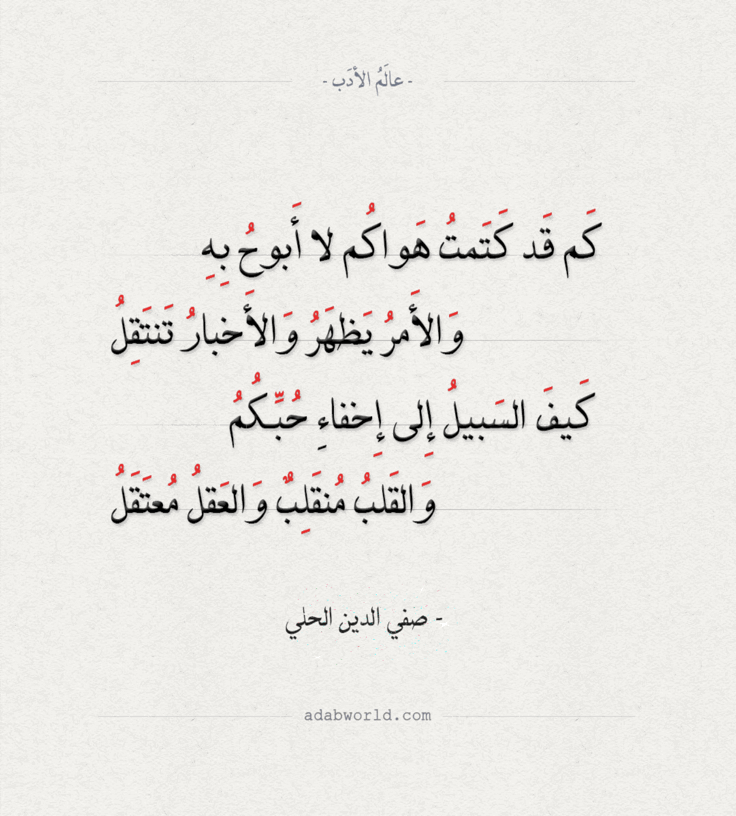 - عالَمُ الأدَب -
كَم قَد كَتَمتُ هَواكُم لا أَبوحُ بِهِ
وَالأَمرُ يَظهَرُ وَالأَخبارُ تَنتَقِلُ
كَيفَ السَبيلُ إِلى إِخفاءِ حُبِّكُمُ
وَالقَلبُ مُنقَلِبٌ وَالعَقلُ مُعتَقَلُ
- صفي الدين الحلي
adabworld.com